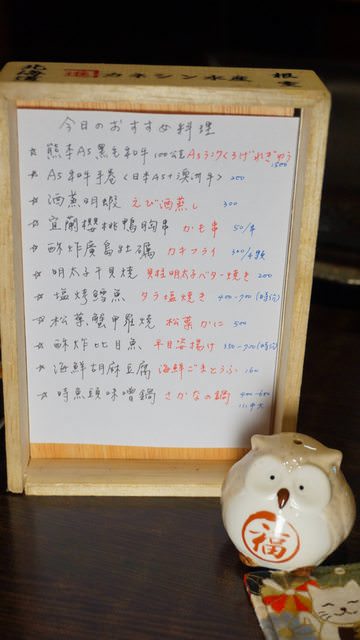 北海道 カネシン水産 根室
今日のおすすめ料理
☆ 熊本A5黒毛和牛100公克 A5ランクくろげわぎゅう 1500
☆ A5和牛手卷〈日本A5+澳洲牛〉 200
☆ 酒蒸明蝦 えび酒蒸し 300
☆ 宜蘭櫻桃鴨胸串 かも串 50/串
☆ 酥炸廣島牡蠣 カキフライ 300/4顆
☆ 明太子干貝燒 貝柱明太子バター焼き 200
☆ 塩烤鱈魚 タラ塩焼き 400-700(時价)
☆ 松葉蟹甲羅燒 松葉かに 500
☆ 酥炸比目魚 平目姿揚げ 350-700(時价)
☆ 海鮮胡麻豆腐 海鮮ごまとうふ 160
☆ 時魚頭味噌鍋 さかなの鍋 400-600
小中大
福